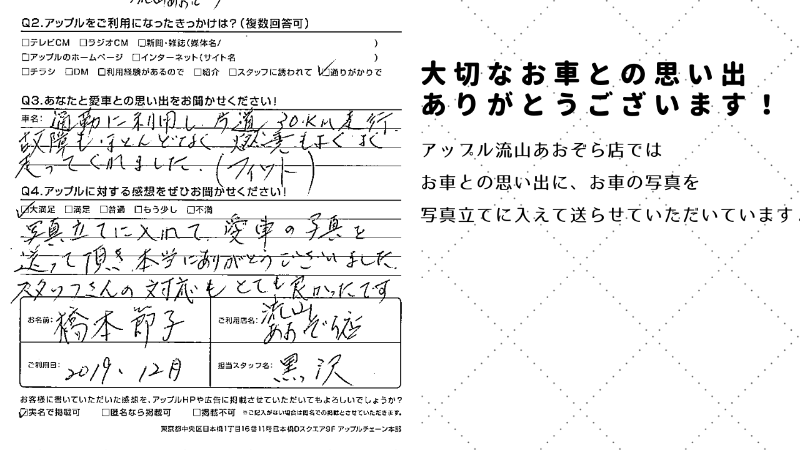 Q2.アップルをご利用になったきっかけは?(複数回答可)
□テレビCM □ラジオCM □新聞・雑誌(媒体名/ )
□アップルのホームページ □インターネット(サイト名 )
□チラシ □DM □利用経験があるので □紹介 □スタッフに誘われて ☑通りがかりで
Q3.あなたと愛車との思い出をお聞かせください!
車名: 通勤に利用し片道 30.KM走行
故障もほとんどなく 燃費もよく よく
走ってくれました. (フィット)
Q4.アップルに対する感想をぜひお聞かせください!
☑大満足 □満足 □普通 □もう少し □不満
写真立てに入れて 愛車の写真を
送って頂き 本当にありがとうございました
スタッフさんの対応も とても良かったです
お名前: 橋本 節子
ご利用店名: 流山
あおぞら店
ご利用日: 2019、12月
担当スタッフ名: 黒沢
お客様に書いていただいた感想を、アップルHPや広告に掲載させていただいてもよろしいでしょうか?
☑実名で掲載可 □匿名なら掲載可 □掲載不可 ※ご記入がない場合は匿名での掲載とさせていただきます。
東京都中央区日本橋1丁目16番11号日本橋Dスクエア9F アップルチェーン本部
大切なお車との思い出
ありがとうございます!
アップル流山あおぞら店では
お車との思い出に、お車の写真を
写真立てに入れて送らせていただいています.